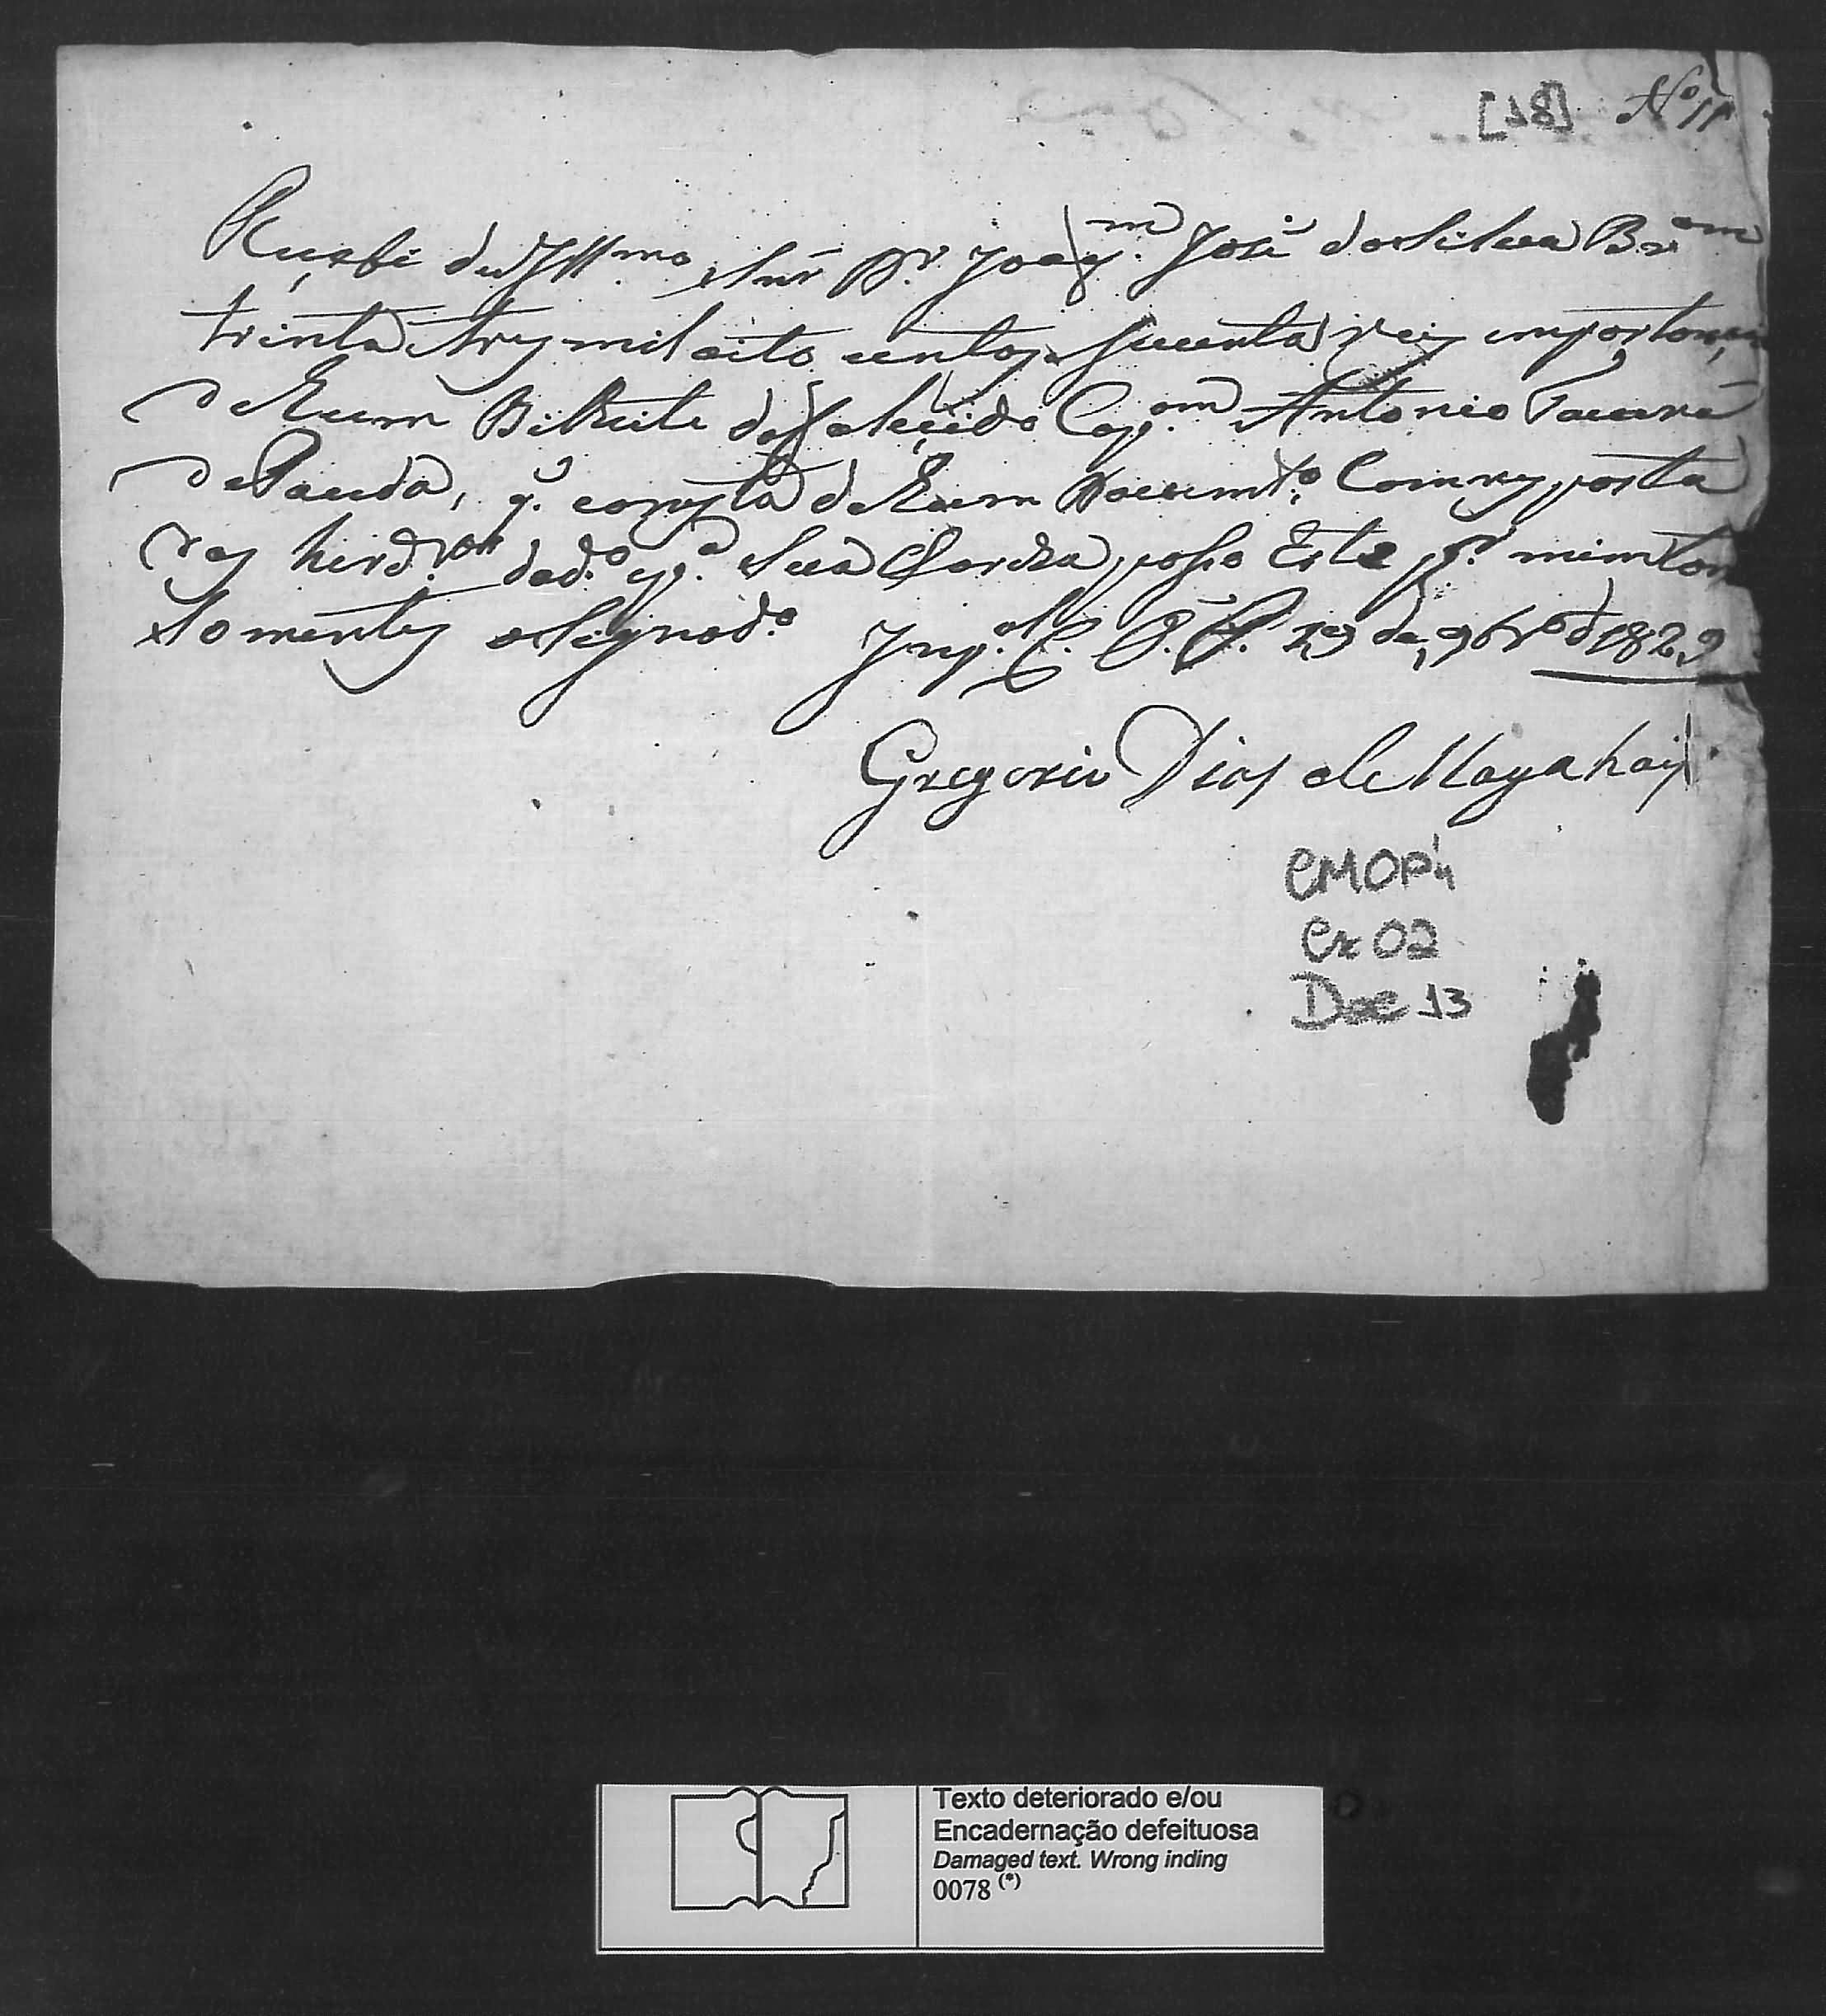 [18] Nº 11
Recebi do Illmo Snr Dr. Joaqm. José da Silva Bram
trinta e trez mil oito centos secenta reis emportanc
de hum Bilhete do falecido Capam. Antonio Tavares
de Paiva, q. consta de hum Docum.to Com resposta
dos herdros. dad.o e pa. Sua Clareza passo Este pr. mim
Somente asignado. Impal. C. O. P. 19 de 9bro d 1829
Gregorio Dias de Magahais
CMOP
Cx 02
Doc 13
Texto deteriorado e/ou
Encadernação defeituosa
Damaged text. Wrong inding
0078 (*)